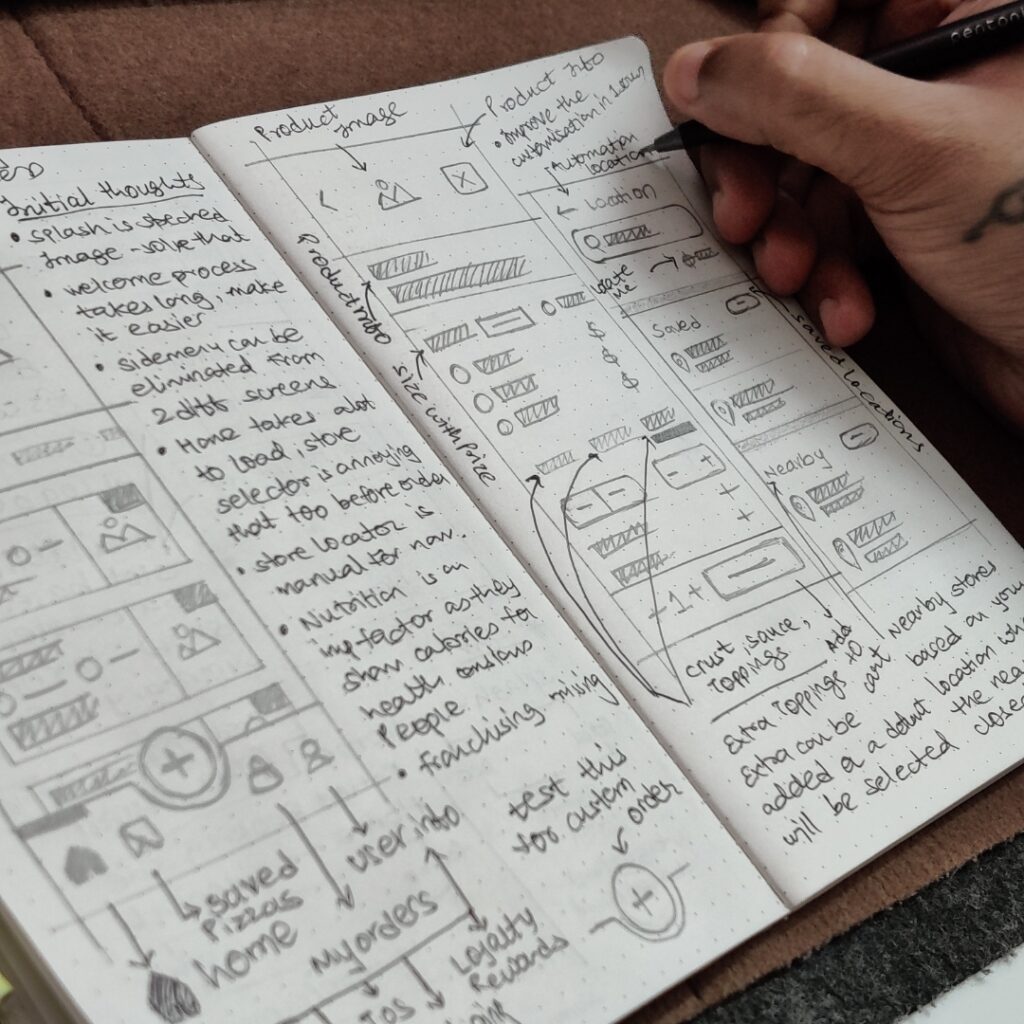 Initial thoughts
• splash is stretched
image - solve that
• welcome process
takes long, make
it easier
• sidemenu can be
eliminated from
2 diff screens
• Home takes alot
to load, store
selector is annoying
that too before order
• store locator is
manual for nav.
• Nutrition is an
imp factor as they
show calories for
health conscious
People
• franchising missing
user info
saved
Pizzas
home
My orders
Loyalty
Rewards
IOS
test this
for custom
order
Product
Image
Product Info
• Improve the
customisation in
Automation
location
Product Info
size with prize
$
$
$
- +
+
+
- 1 +
Crust, sauce,
Toppings
Add
to
cart
Extra Toppings
Extra can be
added
← Location
locate
me
Saved
saved locations
Nearby
Nearby stores
based on your
a default location
will be selected the
closed
pentonic